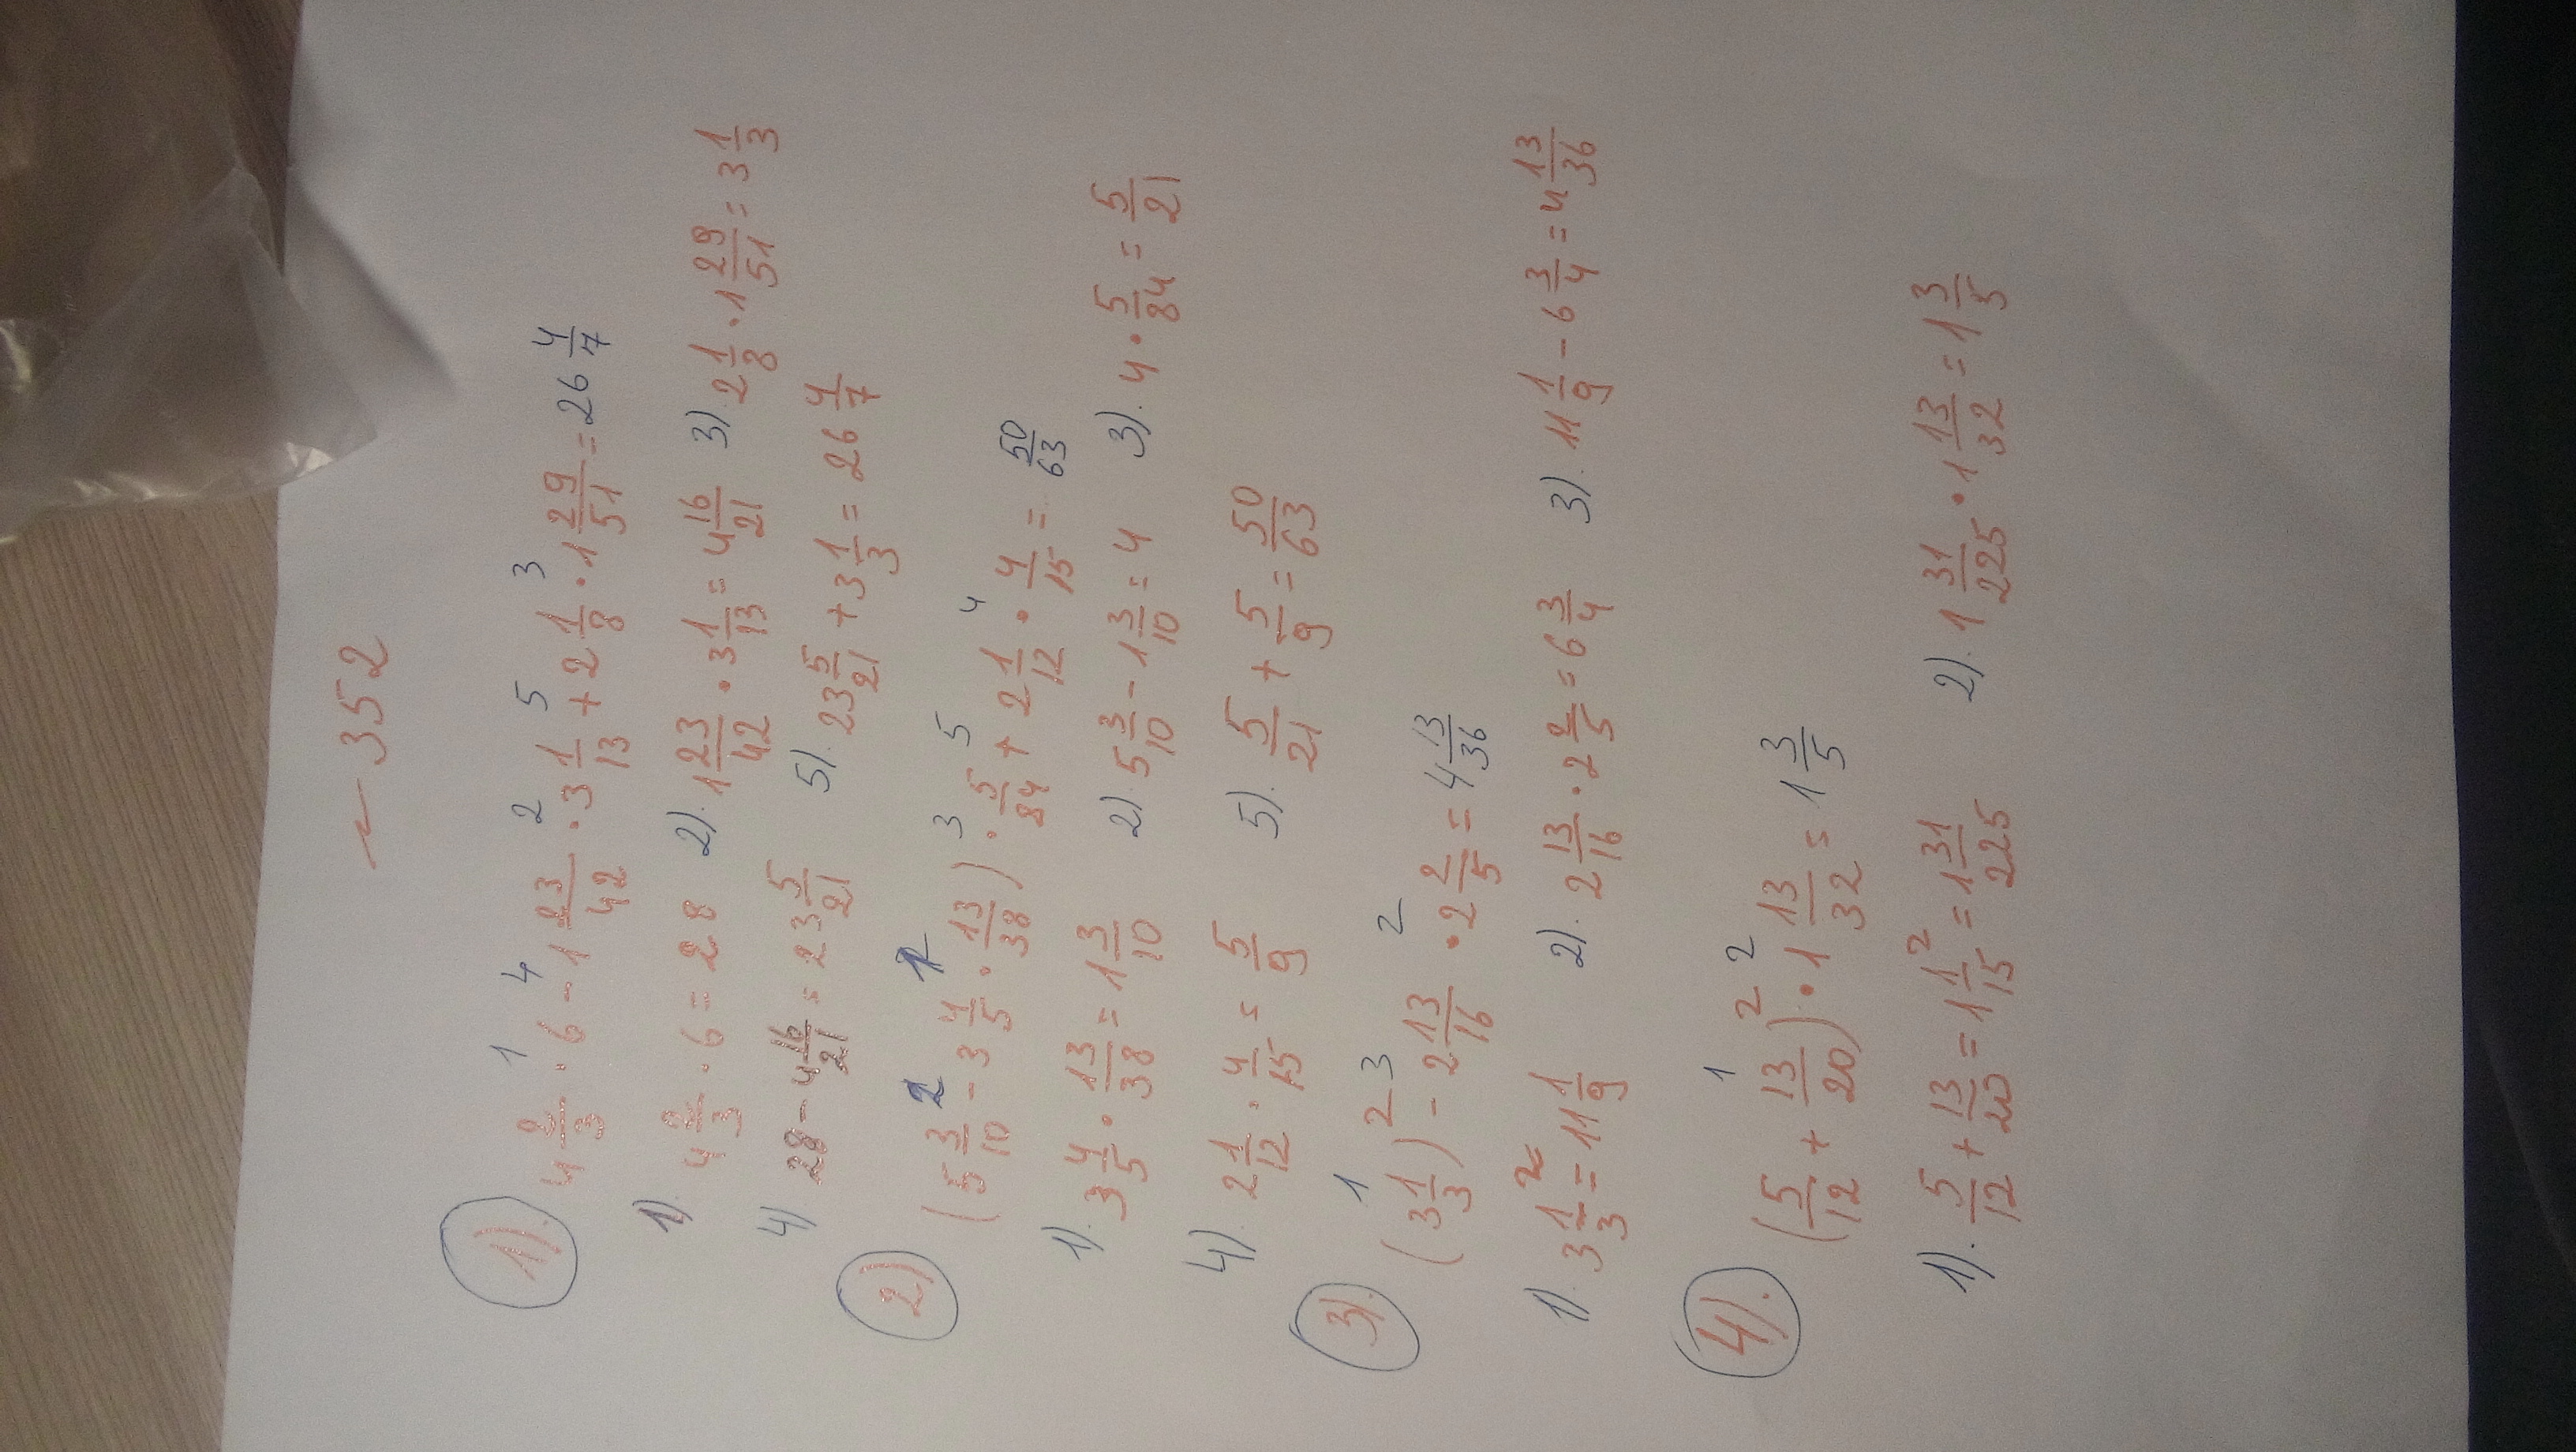 ~ 352
1). 4 2/3 · 6 - 1 23/42 · 3 1/13 + 2 1/8 · 1 29/51 = 26 4/7
1 4 2 5 3
1) 4 2/3 · 6 = 28 2). 1 23/42 · 3 1/13 = 4 16/21 3) 2 1/8 · 1 29/51 = 3 1/3
4) 28 - 4 16/21 = 23 5/21 5). 23 5/21 + 3 1/3 = 26 4/7
2) (5 3/10 - 3 4/5 · 13/38) · 5/84 + 2 1/12 · 4/15 = 50/63
2 1 3 5 4
1). 3 4/5 · 13/38 = 1 3/10 2). 5 3/10 - 1 3/10 = 4 3). 4 · 5/84 = 5/21
4). 2 1/12 · 4/15 = 5/9 5). 5/21 + 5/9 = 50/63
3). (3 1/3)² - 2 13/16 · 2 2/5 = 4 13/36
1 3 2
1). 3 1/3² = 11 1/9 2). 2 13/16 · 2 2/5 = 6 3/4 3). 11 1/9 - 6 3/4 = 4 13/36
4). (5/12 + 13/20)² · 1 13/32 = 1 3/5
1 2
1). 5/12 + 13/20 = 1 1/15² = 1 31/225 2). 1 31/225 · 1 13/32 = 1 3/5